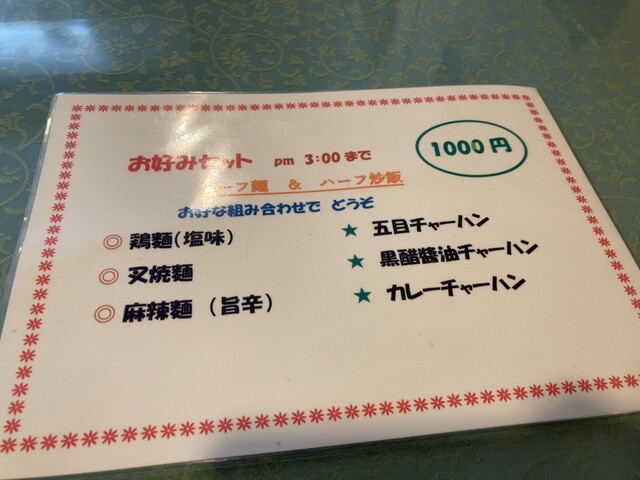 お好みセット pm 3:00 まで
1000円
ハーフ麺 & ハーフ炒飯
お好な組み合わせで どうぞ
◎ 鶏麺(塩味)
◎ 叉焼麺
◎ 麻辣麺 (旨辛)
★ 五目チャーハン
★ 黒醋醬油チャーハン
★ カレーチャーハン